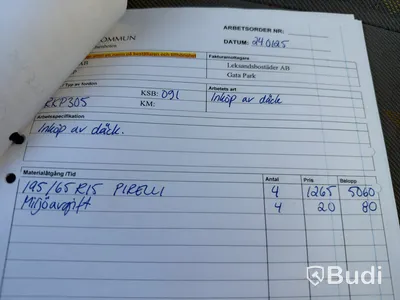 OMMUN
ARBETSORDER NR:
DATUM: 240125
Fakturamottagare
AB
Leksandsbostäder AB
Gata Park
Typ av fordon
KSB: 091
Arbetets art
RKP305
KM:
Inköp av däck
Arbetsspecifikation
Inköp av däck.
Materialåtgång /Tid
Antal
Pris
Belopp
195/65 R15 PIRELLI
4
1265
5060
Miljöavgift
4
20
80
Budi